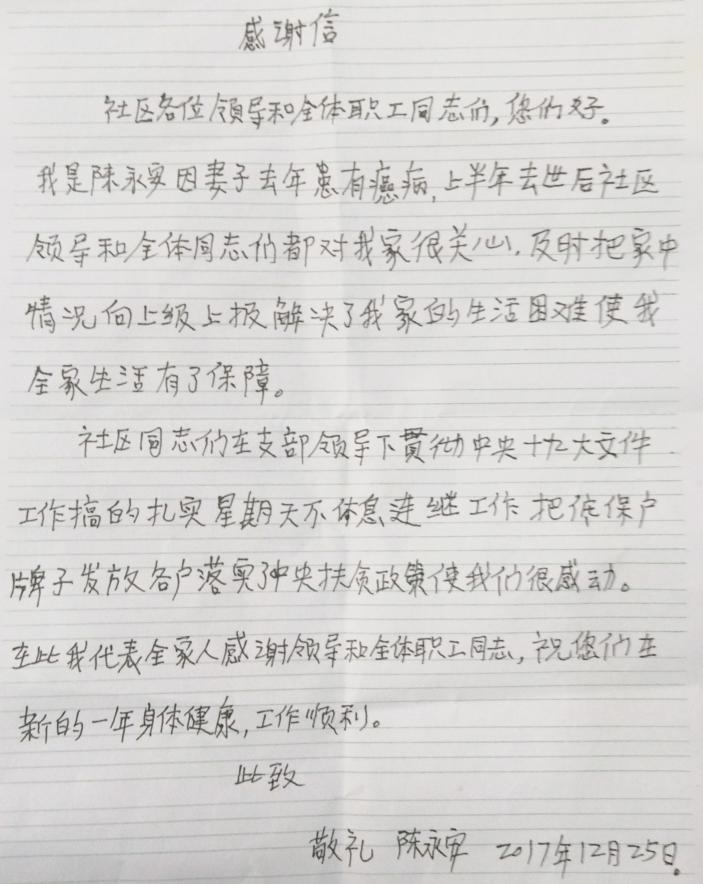 感谢信
社区各位领导和全体职工同志们,您们好。
我是陈永安因妻子去年患有癌病,上半年去世后社区
领导和全体同志们都对我家很关心,及时把家中
情况向上级上报解决了我家的生活困难使我
全家生活有了保障。
社区同志们在支部领导下贯彻中央十九大文件
工作搞的扎实星期天不休息连继工作把低保户
牌子发放各户落实了中央扶贫政策使我们很感动。
在此我代表全家人感谢领导和全体职工同志,祝您们在
新的一年身体健康,工作顺利。
此致
敬礼 陈永安 2017年12月25日。